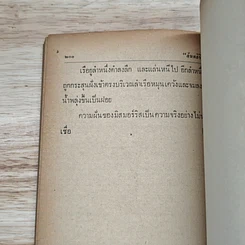 ๒๑๐
เรือดูดำหนึ่งดำลงลึก และแล่นหนีไป อีกลำหนึ่ง
ถูกกระสุนฝังเข้าตรงบริเวณลำเรือหมุนเคว้ง
น้ำพลุ่งขึ้นเป็นฝอย
ความฝันของมิสมอร์ริสเป็นความจริงอย่าง
เชื่อ